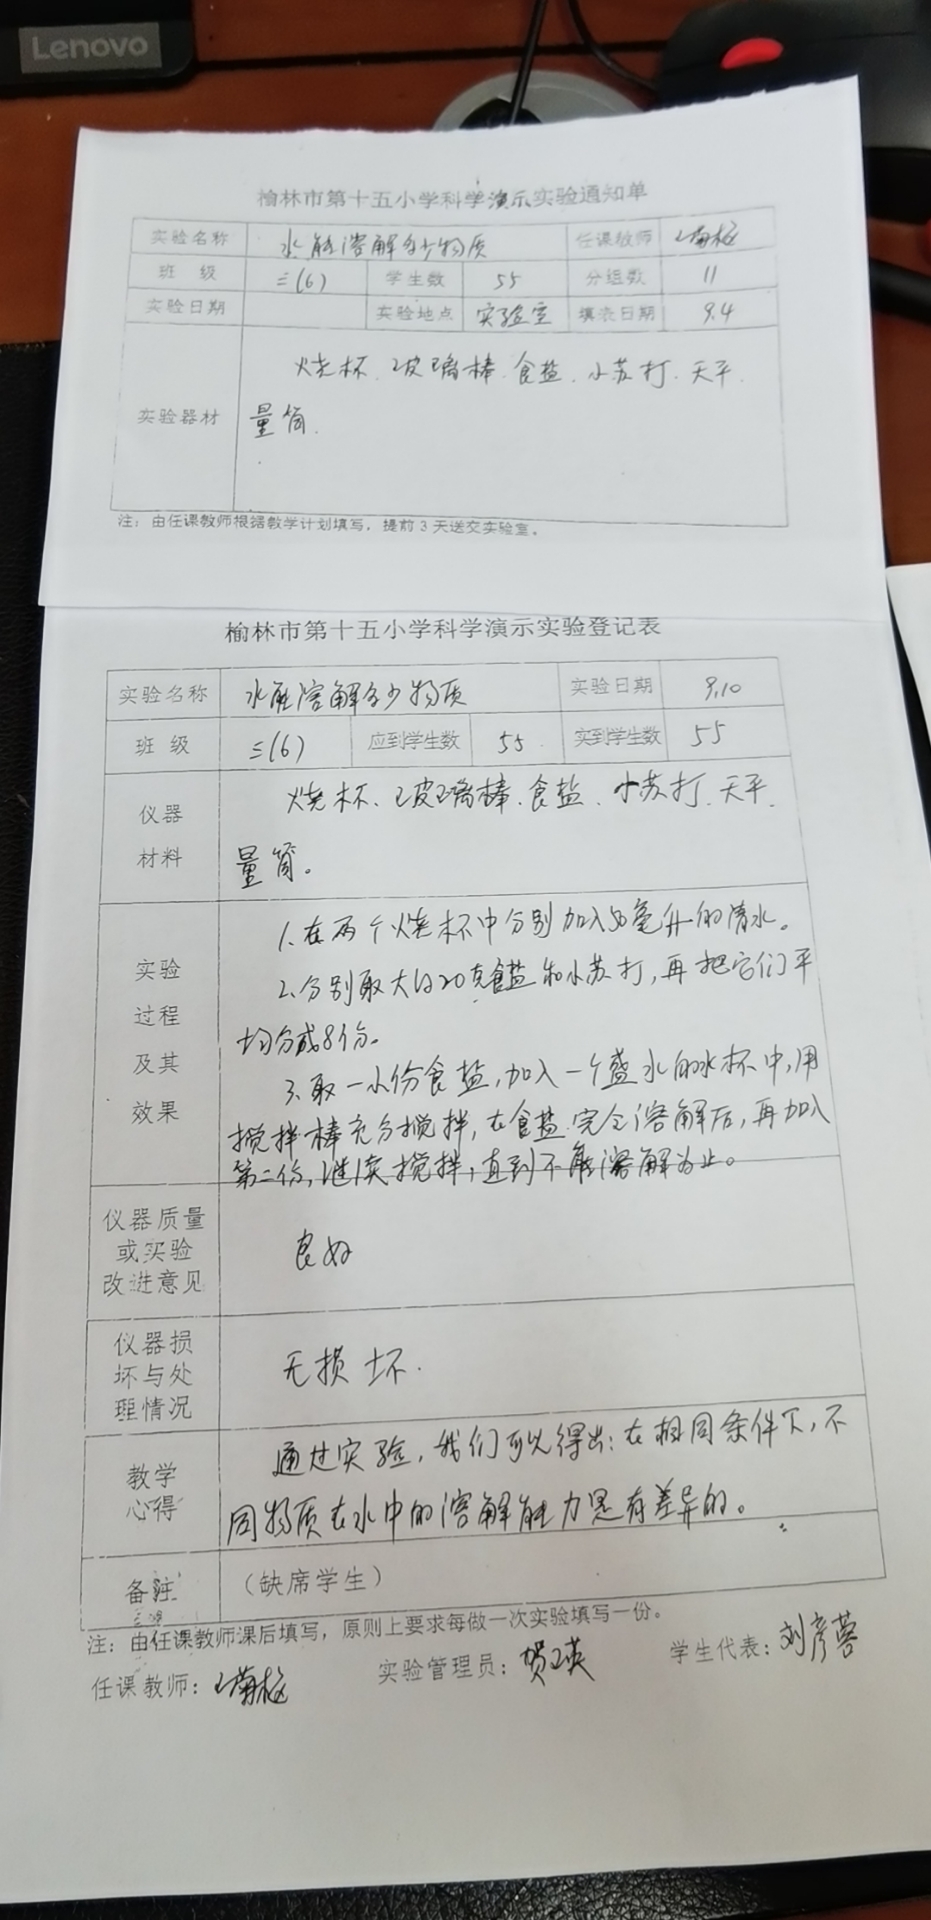 Lenovo
榆林市第十五小学科学演示实验通知单
实验名称 水能溶解多少物质 任课教师
班 级 三(6) 学生数 55 分组数 11
实验日期 实验地点 实验室 填表日期 9.4
烧杯、玻璃棒、食盐、小苏打、天平、
实验器材 量筒.
注：由任课教师根据教学计划填写，提前 3 天送交实验室。
榆林市第十五小学科学演示实验登记表
实验名称 水能溶解多少物质 实验日期 9.10
班 级 三(6) 应到学生数 55 实到学生数 55
仪器 烧杯、玻璃棒、食盐、小苏打、天平、
材料 量筒。
1.在两个烧杯中分别加入50毫升的清水。
实验 2.分别取大约20克食盐和小苏打,再把它们平
过程 均分成8份。
及其 3.取一小份食盐,加入一个盛水的水杯中,用
效果 搅拌棒充分搅拌,在食盐完全溶解后,再加入
第二份,继续搅拌,直到不能溶解为止。
仪器质量
或实验 良好
改进意见
仪器损
坏与处 无损坏.
理情况
教学 通过实验,我们可以得出:在相同条件下,不
心得 同物质在水中的溶解能力是有差异的。
备注 （缺席学生）
注：由任课教师课后填写，原则上要求每做一次实验填写一份。
任课教师： 实验管理员： 学生代表：刘彦蓉